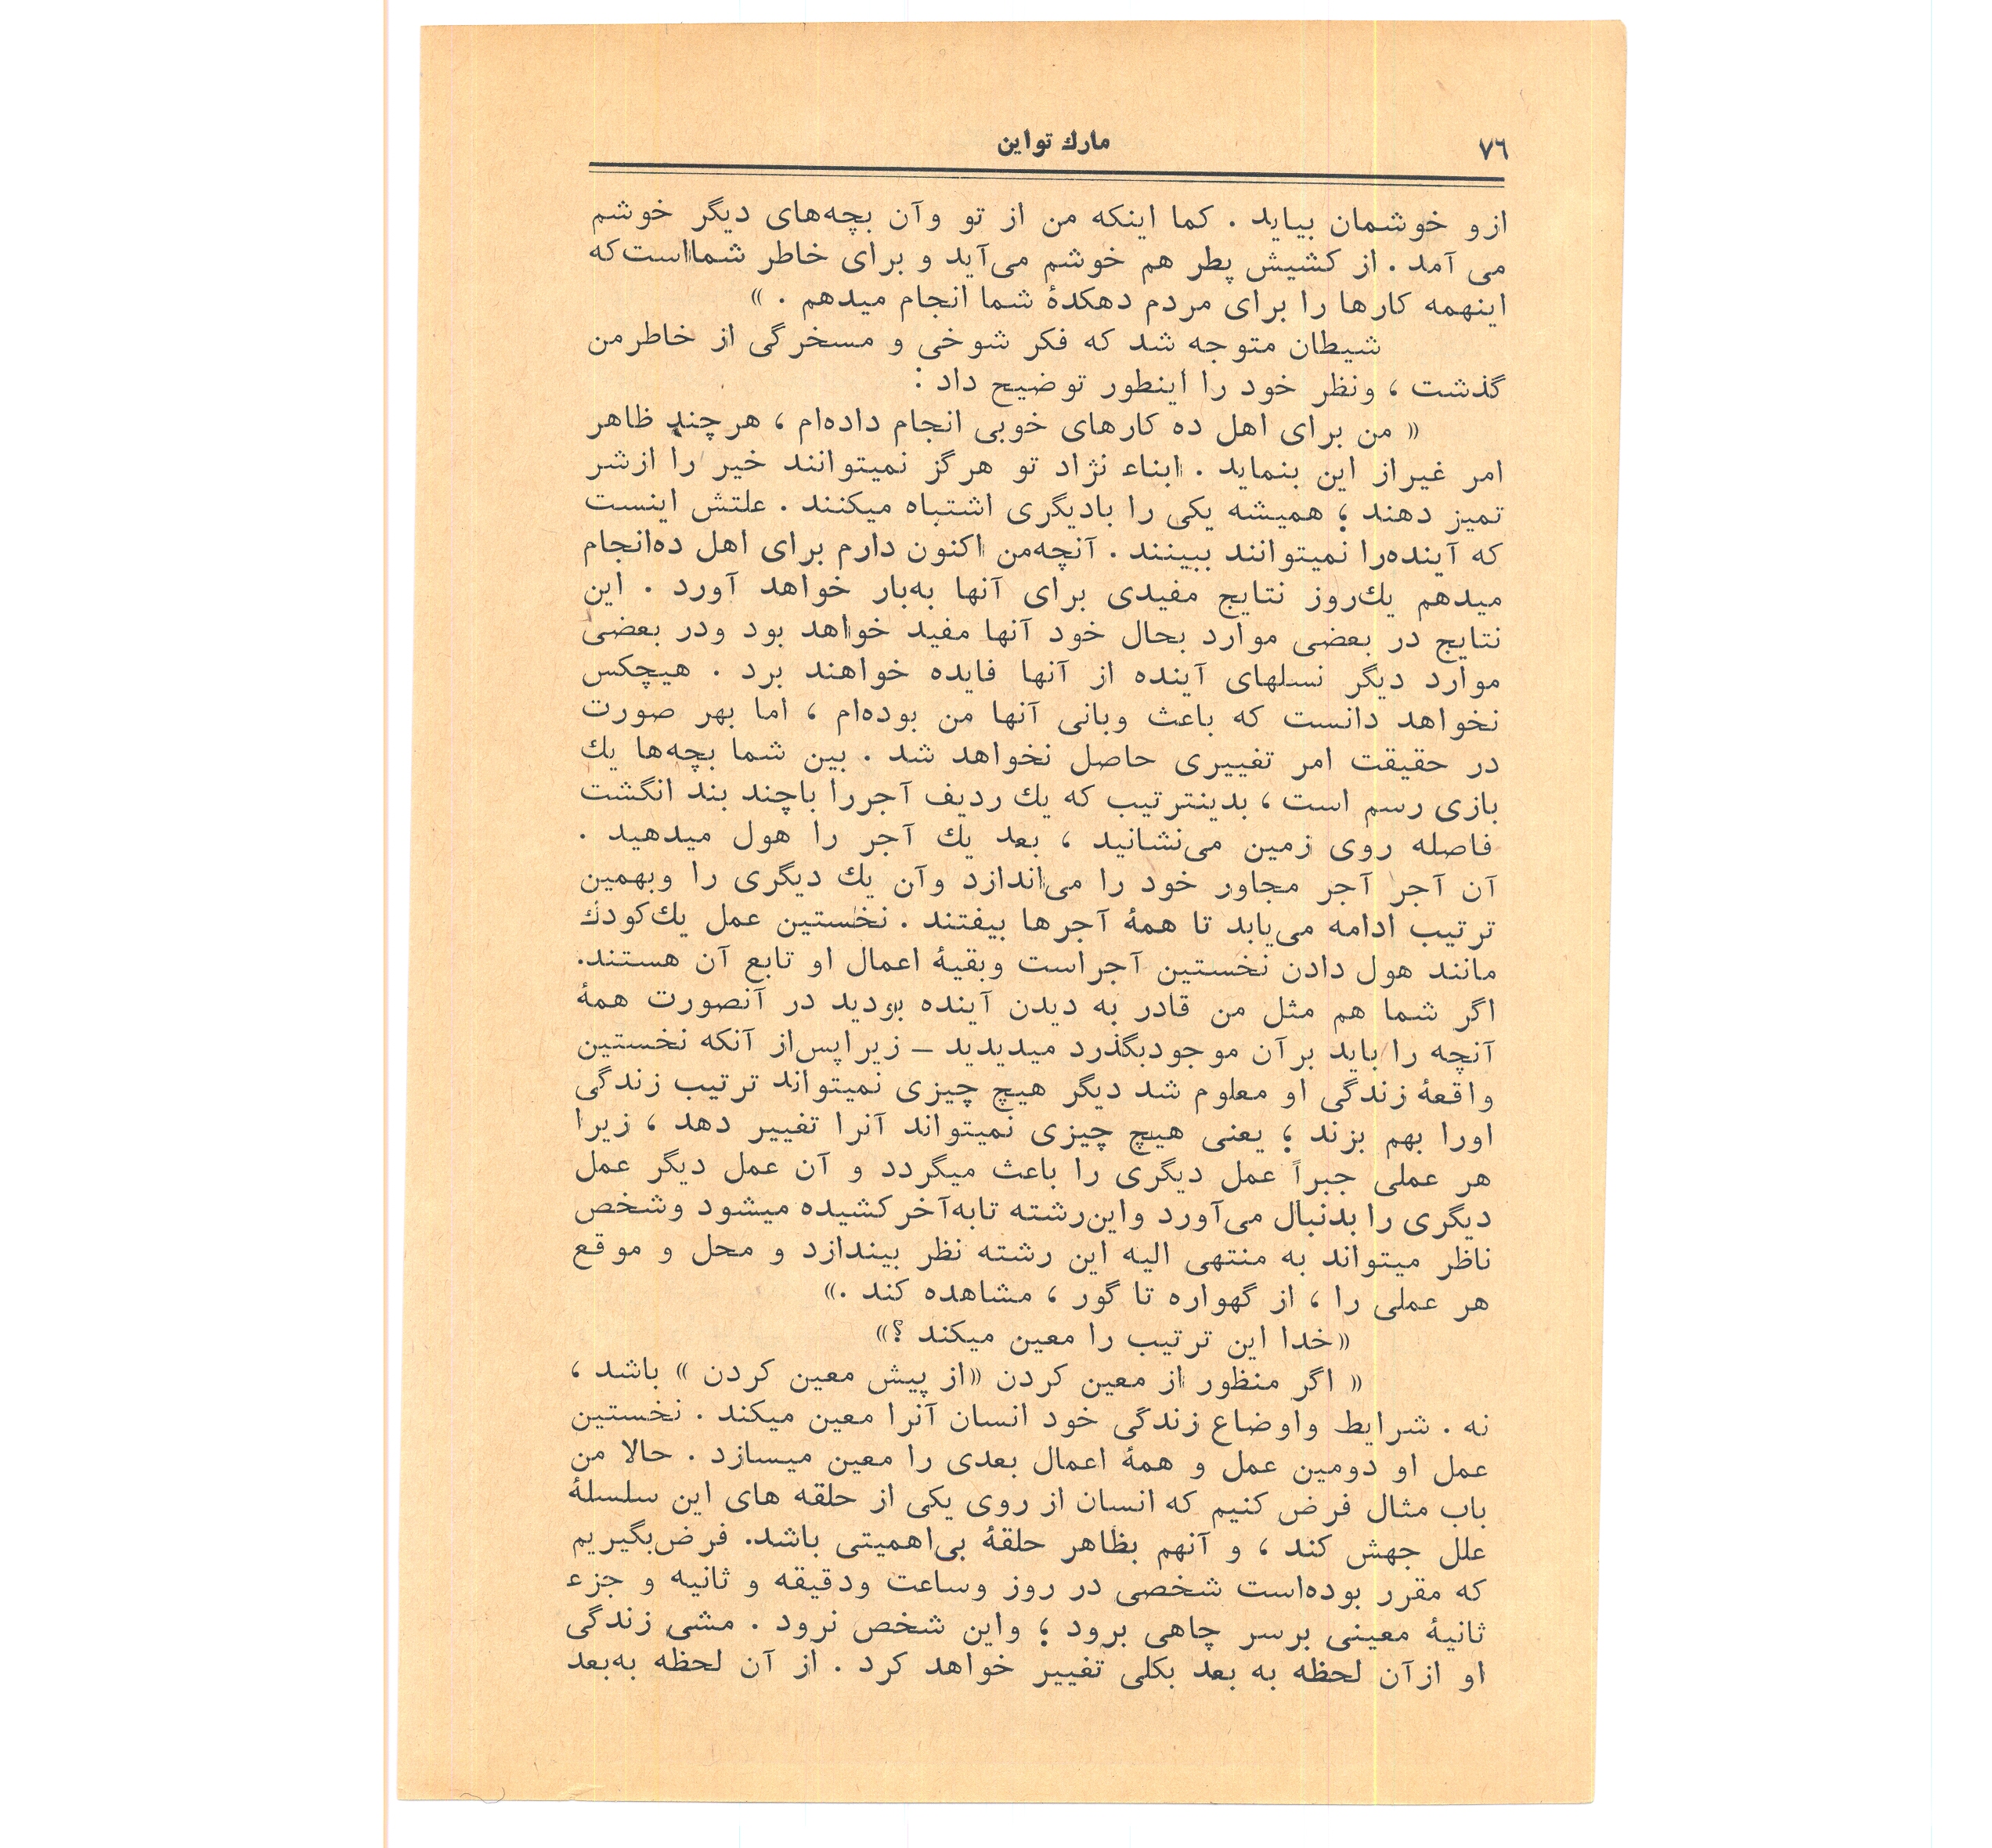 ۷٦
مارك تواین
ازو خوشمان بیاید . کما اینکه من از تو وآن بچه‌های دیگر خوشم
می آمد . از کشیش پطر هم خوشم می‌آید و برای خاطر شمااست‌که
اینهمه کارها را برای مردم دهکدۀ شما انجام میدهم . »
شیطان متوجه شد که فکر شوخی و مسخرگی از خاطرمن
گذشت ، ونظر خود را اینطور توضیح داد :
« من برای اهل ده کارهای خوبی انجام داده‌ام ، هرچند ظاهر
امر غیراز این بنماید . ابناء نژاد تو هرگز نمیتوانند خیر را ازشر
تمیز دهند ؛ همیشه یکی را بادیگری اشتباه میکنند . علتش اینست
که آینده‌را نمیتوانند ببینند . آنچه‌من اکنون دارم برای اهل ده‌انجام
میدهم یك‌روز نتایج مفیدی برای آنها به‌بار خواهد آورد . این
نتایج در بعضی موارد بحال خود آنها مفید خواهد بود ودر بعضی
موارد دیگر نسلهای آینده از آنها فایده خواهند برد . هیچکس
نخواهد دانست که باعث وبانی آنها من بوده‌ام ، اما بهر صورت
در حقیقت امر تغییری حاصل نخواهد شد . بین شما بچه‌ها یك
بازی رسم است ، بدینترتیب که یك ردیف آجررا باچند بند انگشت
فاصله روی زمین می‌نشانید ، بعد یك آجر را هول میدهید .
آن آجر آجر مجاور خود را می‌اندازد وآن یك دیگری را وبهمین
ترتیب ادامه می‌یابد تا همۀ آجرها بیفتند . نخستین عمل یك‌کودك
مانند هول دادن نخستین آجراست وبقیۀ اعمال او تابع آن هستند.
اگر شما هم مثل من قادر به دیدن آینده بودید در آنصورت همۀ
آنچه را باید برآن موجودبگذرد میدیدید ــ زیراپس‌از آنکه نخستین
واقعۀ زندگی او معلوم شد دیگر هیچ چیزی نمیتواند ترتیب زندگی
اورا بهم بزند ؛ یعنی هیچ چیزی نمیتواند آنرا تغییر دهد ، زیرا
هر عملی جبراً عمل دیگری را باعث میگردد و آن عمل دیگر عمل
دیگری را بدنبال می‌آورد واین‌رشته تابه‌آخرکشیده میشود وشخص
ناظر میتواند به منتهی الیه این رشته نظر بیندازد و محل و موقع
هر عملی را ، از گهواره تا گور ، مشاهده کند .»
«خدا این ترتیب را معین میکند ؟»
« اگر منظور از معین کردن «از پیش معین کردن » باشد ،
نه . شرایط واوضاع زندگی خود انسان آنرا معین میکند . نخستین
عمل او دومین عمل و همۀ اعمال بعدی را معین میسازد . حالا من
باب مثال فرض کنیم که انسان از روی یکی از حلقه های این سلسلۀ
علل جهش کند ، و آنهم بظاهر حلقۀ بی‌اهمیتی باشد. فرض‌بگیریم
که مقرر بوده‌است شخصی در روز وساعت ودقیقه و ثانیه و جزء
ثانیۀ معینی برسر چاهی برود ؛ واین شخص نرود . مشی زندگی
او ازآن لحظه به بعد بکلی تغییر خواهد کرد . از آن لحظه به‌بعد